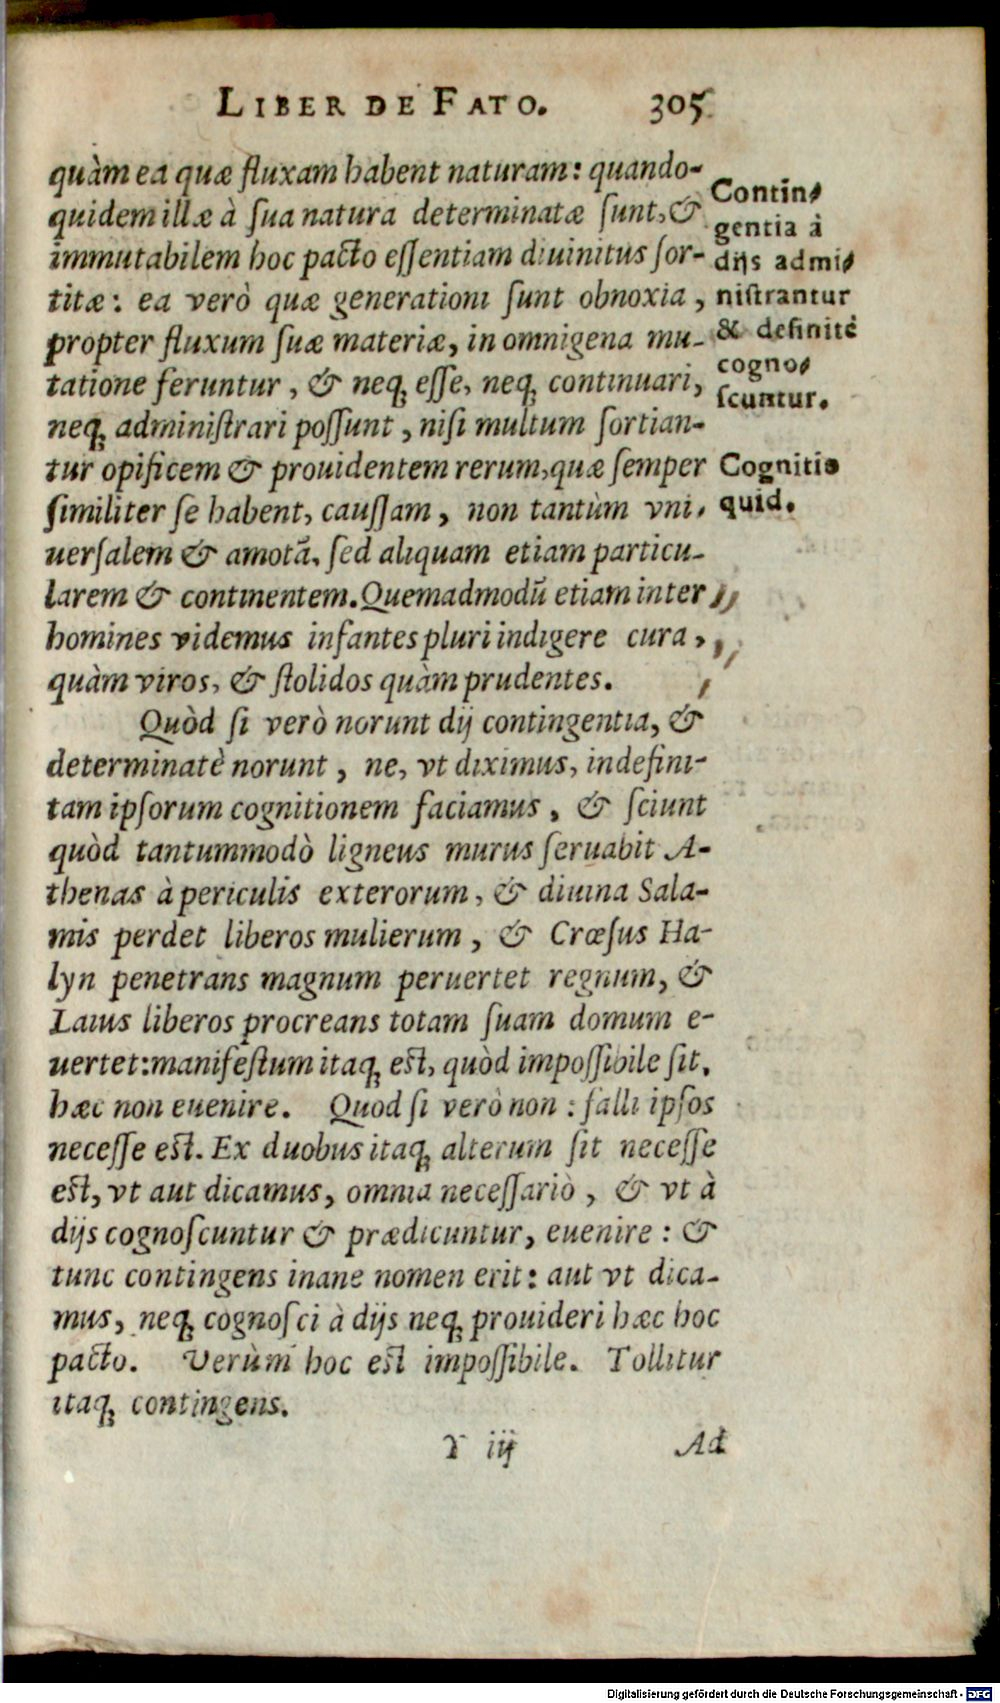 LIBER DE FATO. 305
quàm ea quæ fluxam habent naturam: quando-
quidem illæ à ſua natura determinatæ ſunt, &
immutabilem hoc pacto eſſentiam diuinitus ſor-
titæ: ea verò quæ generationi ſunt obnoxia,
propter fluxum ſuæ materiæ, in omnigena mu-
tatione feruntur, & neq; eſſe, neq; continuari,
neq; adminiſtrari poſſunt, niſi multum ſortian-
tur opificem & prouidentem rerum, quæ ſemper
ſimiliter ſe habent, cauſſam, non tantùm vni-
uerſalem & amotã, ſed aliquam etiam particu-
larem & continentem. Quemadmodũ etiam inter
homines videmus infantes pluri indigere cura,
quàm viros, & ſtolidos quàm prudentes.
Contin-
gentia à
dijs admi-
niſtrantur
& definitè
cogno-
ſcuntur.
Cognitio
quid.
Quòd ſi verò norunt dij contingentia, &
determinatè norunt, ne, vt diximus, indefini-
tam ipſorum cognitionem faciamus, & ſciunt
quòd tantummodò ligneus murus ſeruabit A-
thenas à periculis exterorum, & diuina Sala-
mis perdet liberos mulierum, & Crœſus Ha-
lyn penetrans magnum peruertet regnum, &
Laius liberos procreans totam ſuam domum e-
uertet: manifeſtum itaq; eſt, quòd impoſſibile ſit,
hæc non euenire. Quod ſi verò non: falli ipſos
neceſſe eſt. Ex duobus itaq; alterum ſit neceſſe
eſt, vt aut dicamus, omnia neceſſariò, & vt à
dijs cognoſcuntur & prædicuntur, euenire: &
tunc contingens inane nomen erit: aut vt dica-
mus, neq; cognoſci à dijs neq; prouideri hæc hoc
pacto. Verùm hoc eſt impoſſibile. Tollitur
itaq; contingens.
Y iij Ad
Digitalisierung gefördert durch die Deutsche Forschungsgemeinschaft - DFG